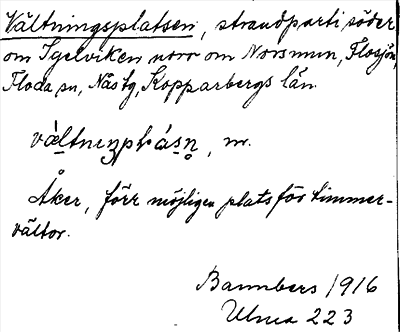 Vältningsplatsen, strandparti söder
om Igelviken norr om Norsmun, Flosjön,
Floda sn, Nås tg, Kopparbergs län.
vältneŋpłásn̥, m.
Åker, förr möjligen plats för timmer-
vältor.
Bannbers 1916
Ulma 223